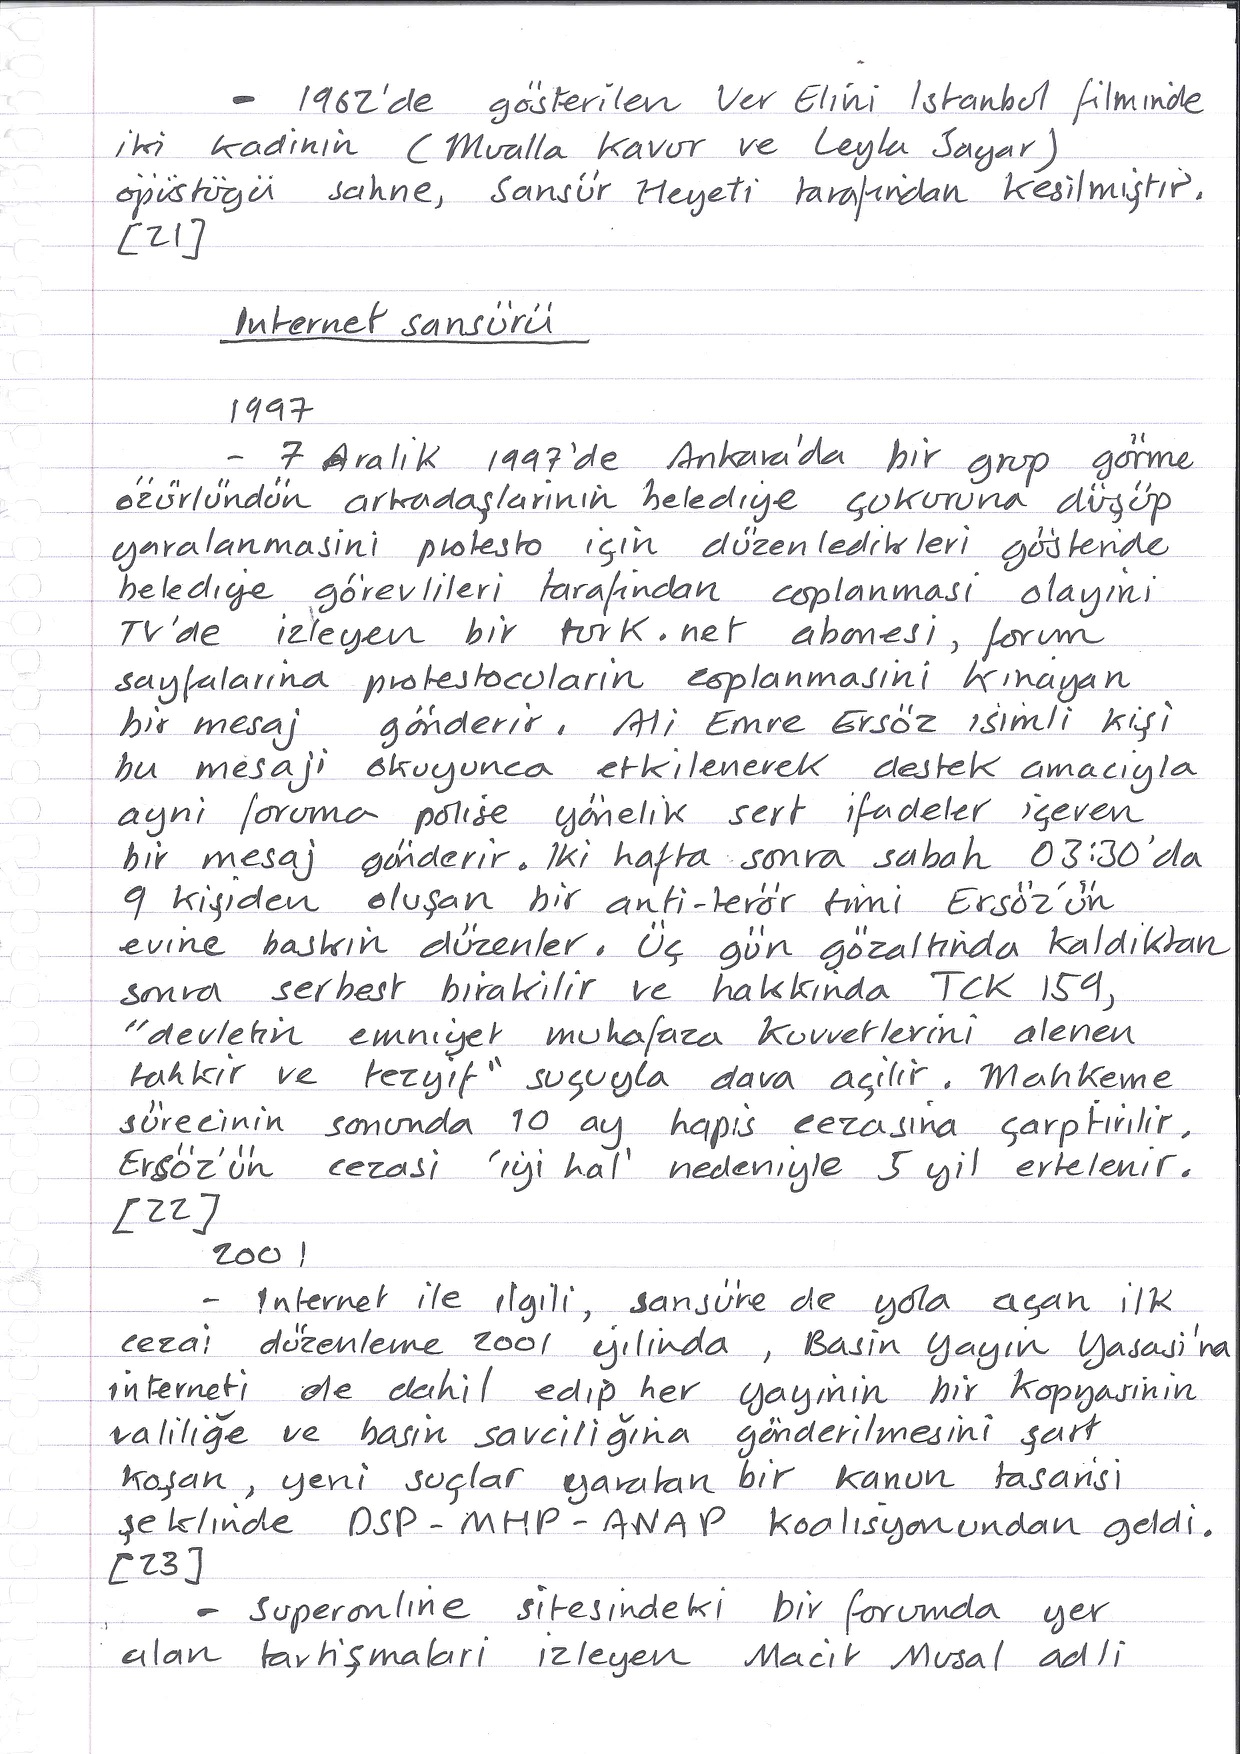 - 1962'de gösterilen Ver Elini Istanbul filminde
iki kadinin (Mualla Kavur ve Leyla Sayar)
öpüstögü sahne, Sansür Heyeti tarafindan kesilmiştir.
[21]
Internet sansürü
1997
- 7 Aralik 1997'de Ankara'da bir grup görme
özürlündün arkadaşlarinin belediye çukuruna düşüp
yaralanmasini protesto için düzenledikleri gösteride
belediye görevlileri tarafindan coplanmasi olayini
TV'de izleyen bir turk.net abonesi, forum
sayfalarina protestocularin coplanmasini kinayan
bir mesaj gönderir. Ali Emre Ersöz isimli kişi
bu mesaji okuyunca etkilenerek destek amaciyla
ayni foruma polise yönelik sert ifadeler içeren
bir mesaj gönderir. Iki hafta sonra sabah 03:30'da
9 kişiden oluşan bir anti-terör timi Ersöz'ün
evine baskin düzenler. Üç gün gözaltinda kaldiktan
sonra serbest birakilir ve hakkinda TCK 159,
"devletin emniyet muhafaza kuvvetlerini alenen
tahkir ve tezyif" suçuyla dava açilir. Mahkeme
sürecinin sonunda 10 ay hapis cezasina çarptirilir.
Ersöz'ün cezasi 'iyi hal' nedeniyle 5 yil ertelenir.
[22]
2001
- Internet ile ilgili, sansüre de yola açan ilk
cezai düzenleme 2001 yilinda, Basin Yayin Yasasi'na
interneti de dahil edip her yayinin bir kopyasinin
valiliğe ve basin savciliğina gönderilmesini şart
koşan, yeni suçlar yaratan bir kanun tasarisi
şeklinde DSP-MHP-ANAP koalisyonundan geldi.
[23]
- Superonline sitesindeki bir forumda yer
alan tartişmalari izleyen Macit Musal adli